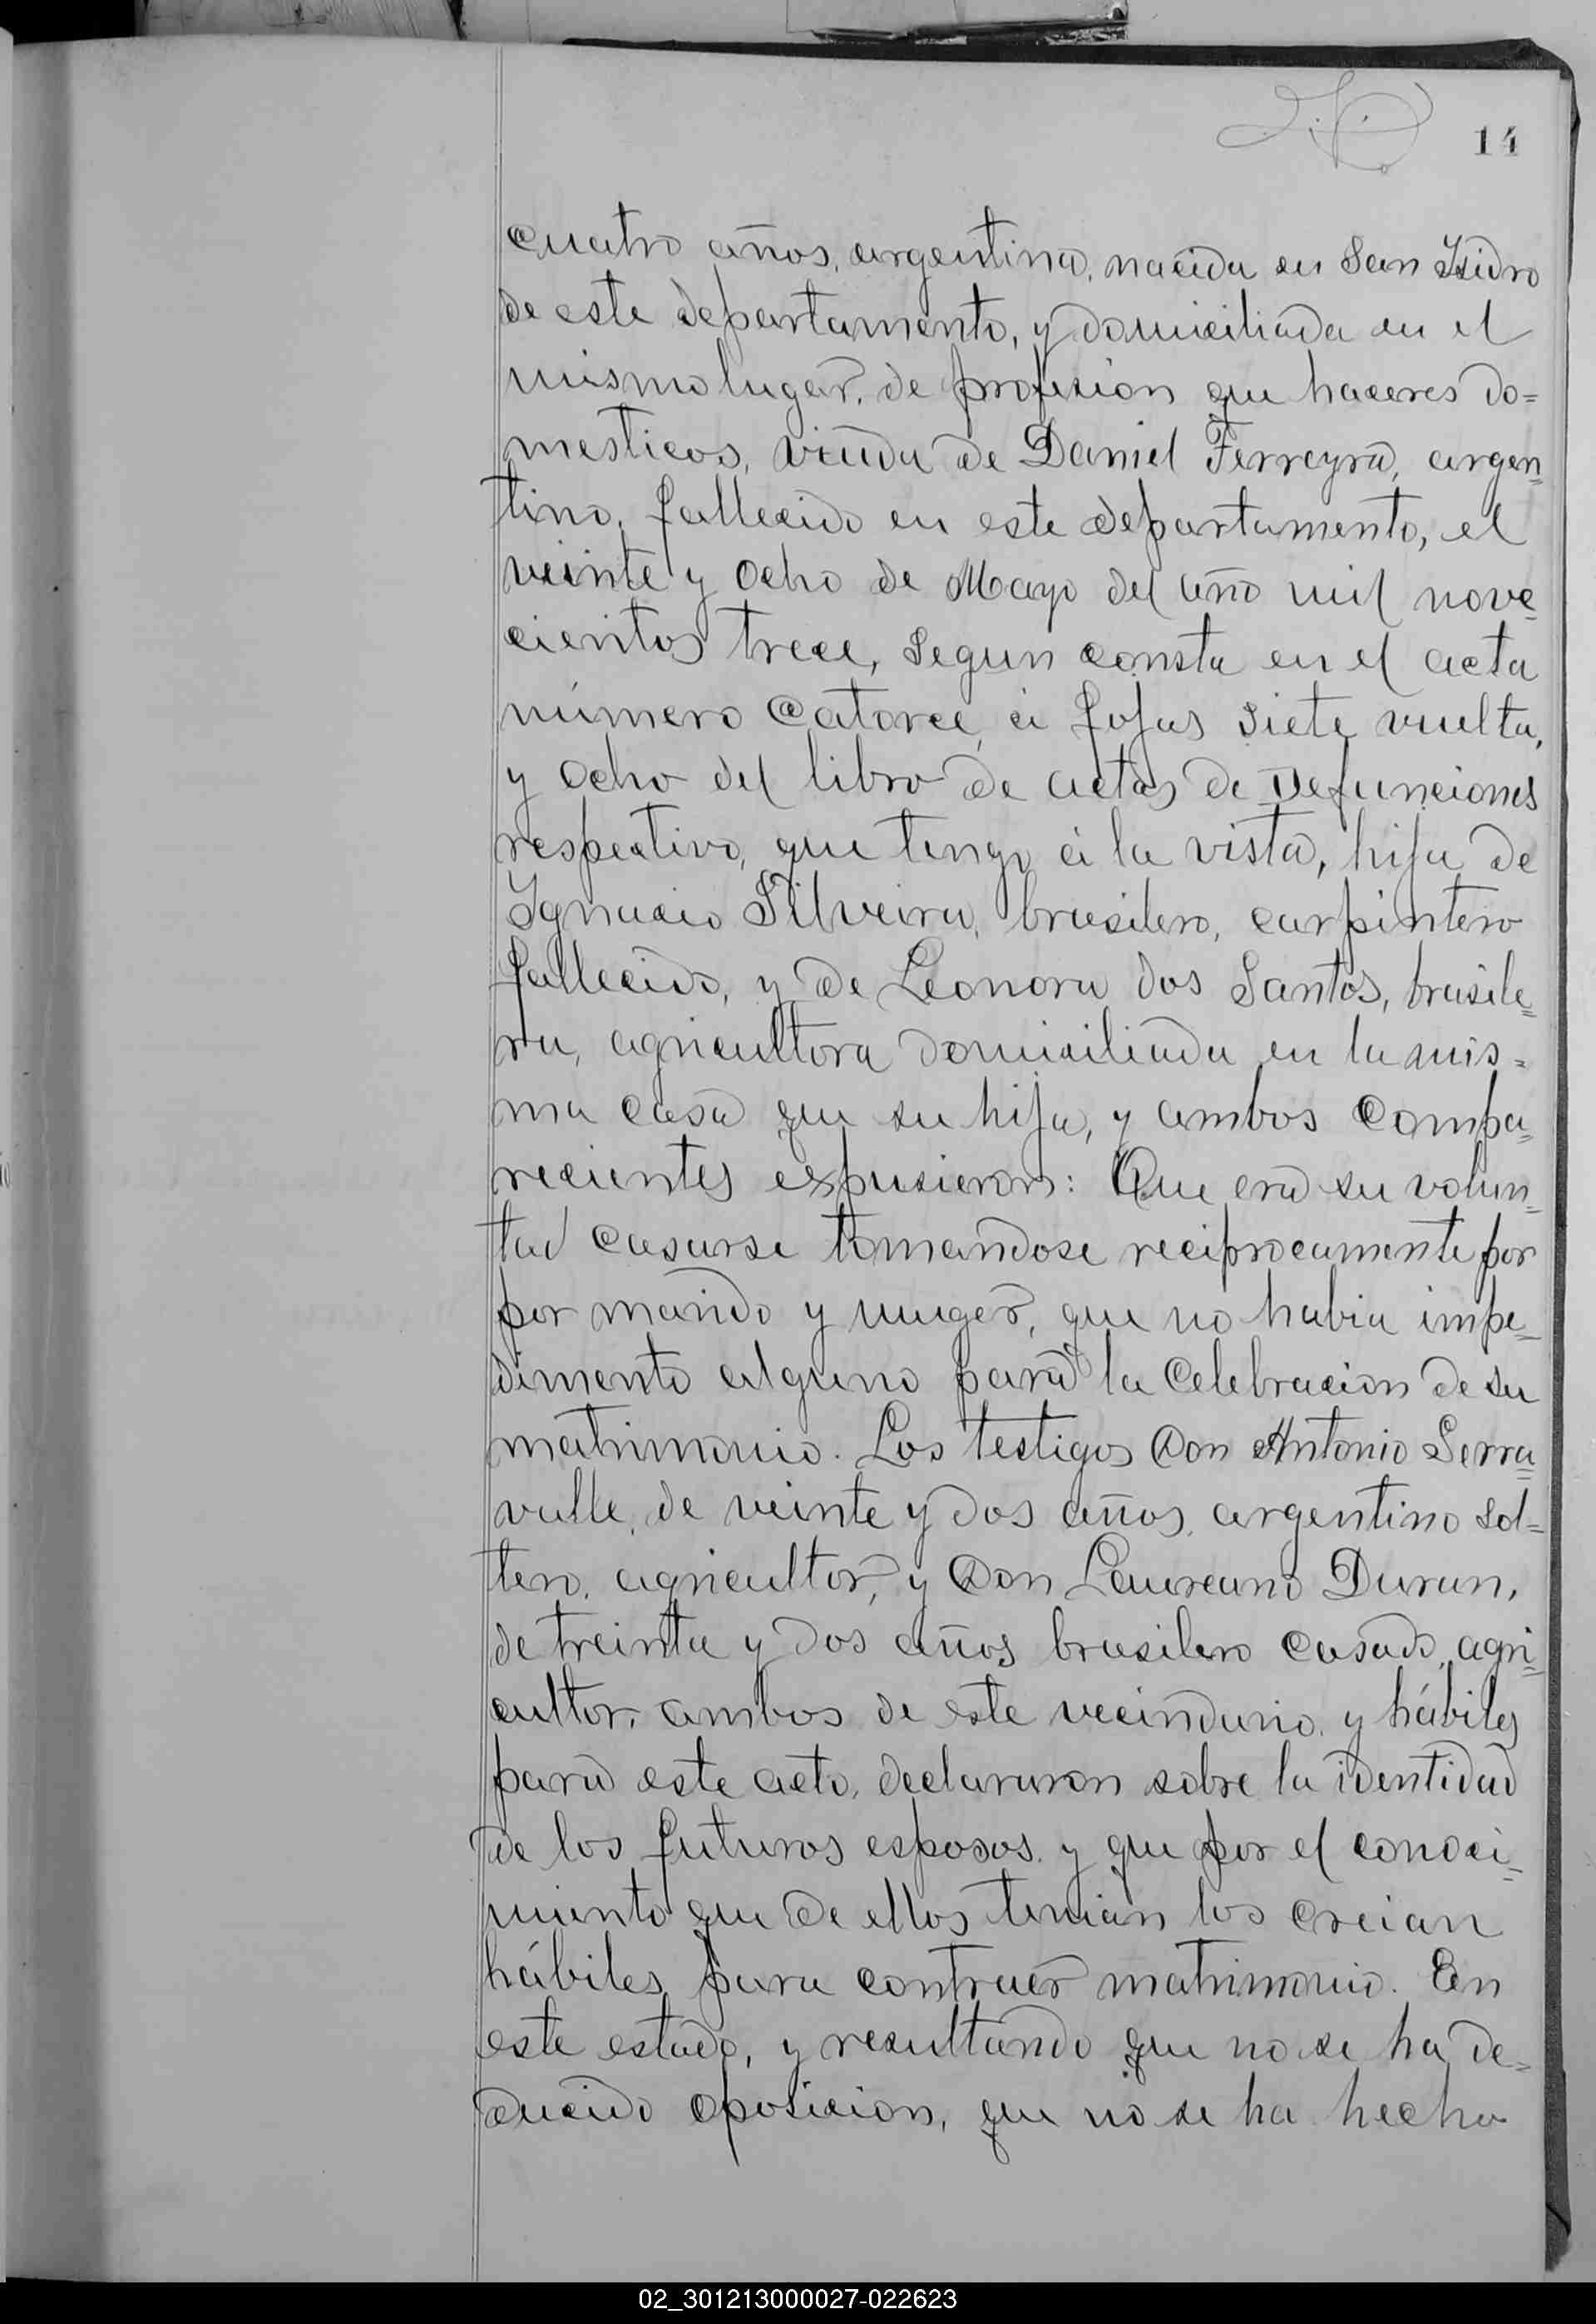 14
cuatro años, argentina, nacida en San Isidro
de este departamento, y domiciliada en el
mismo lugar, de profesion que haceres do=
mesticos, viuda de Daniel Ferreyra, argen=
tino, fallecido en este departamento, el
veinte y ocho de Mayo del año mil nove=
cientos trece, segun consta en el acta
número catorce, á fojas siete vuelta,
y ocho del libro de actas de Defunciones
respectivo, que tengo á la vista, hija de
Ygnacio Silveira, brasilero, carpintero
fallecido, y de Leonora dos Santos, brasile=
ra, agricultora domiciliada en la mis=
ma casa que su hija, y ambos compa=
recientes expusieron: Que era su volun=
tad casarse tomandose reciprocamente por
por marido y muger, que no habia impe=
dimento alguno para la celebracion de su
matrimonio. Los testigos Don Antonio Serra=
valle, de veinte y dos años, argentino sol=
tero, agricultor, y Don Laureano Duran,
de treinta y dos años brasilero casado, agri=
cultor, ambos de este vecindario, y hábiles
para este acto, declararon sobre la identidad
de los futuros esposos, y que por el conoci=
miento que de ellos tenian los creian
hábiles para contraer matrimonio. En
este estado, y resultando que no se ha de=
ducido oposicion, que no se ha hecho
02_301213000027-022623